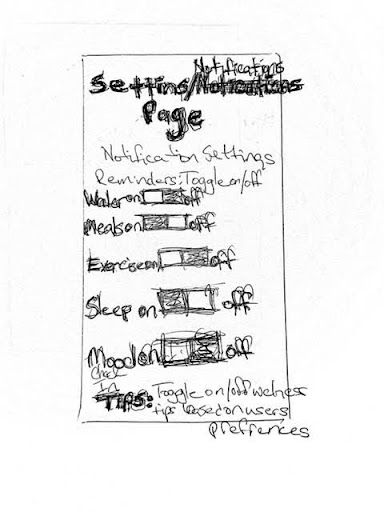 Notifications
Setting/Notifications
Page
Notification Settings
Reminders: Toggle on/off
Water on off
Meals on off
Exercise on off
Sleep on off
Mood on off
Check
In
TIPS: Toggle on/off welness
tips based on users
prefrences